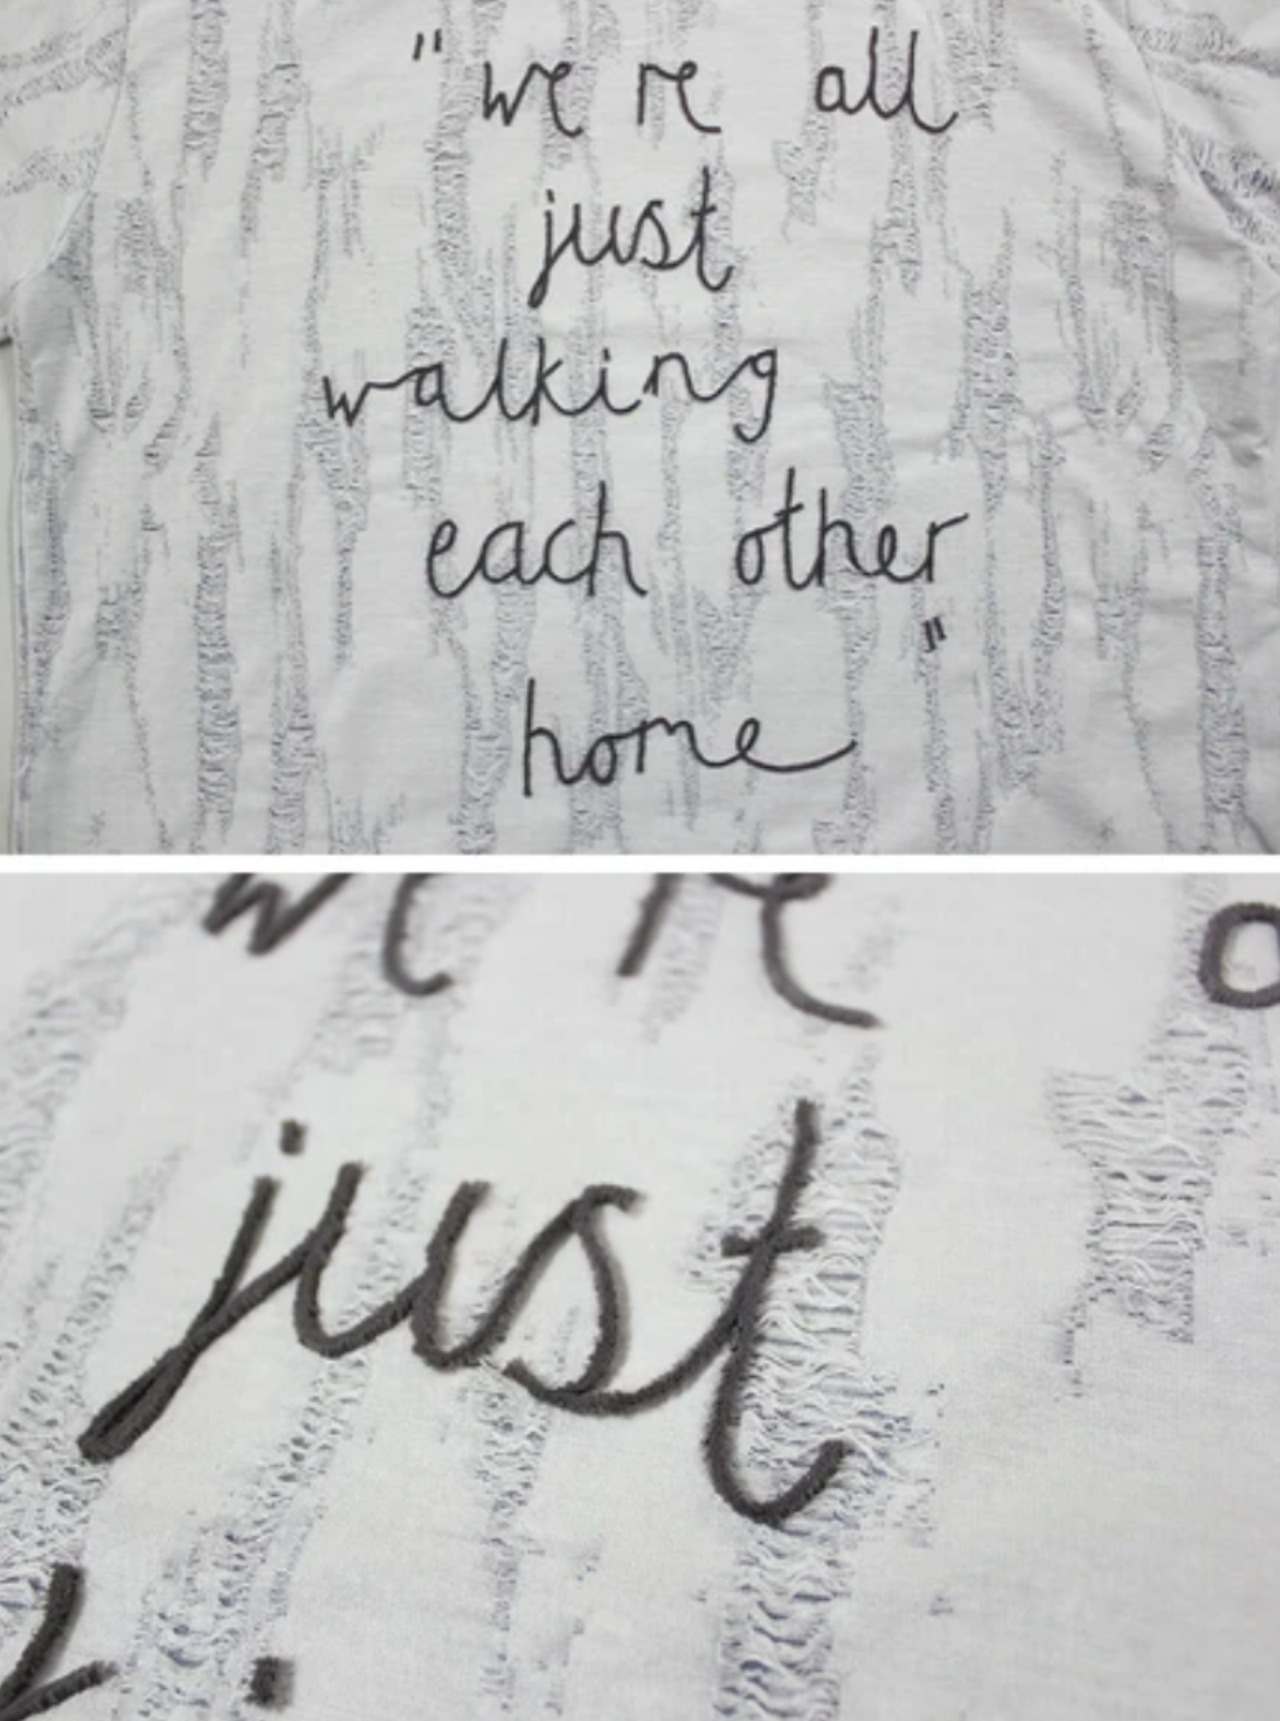 "we re all
just
walking
each other
"
home
we re
just